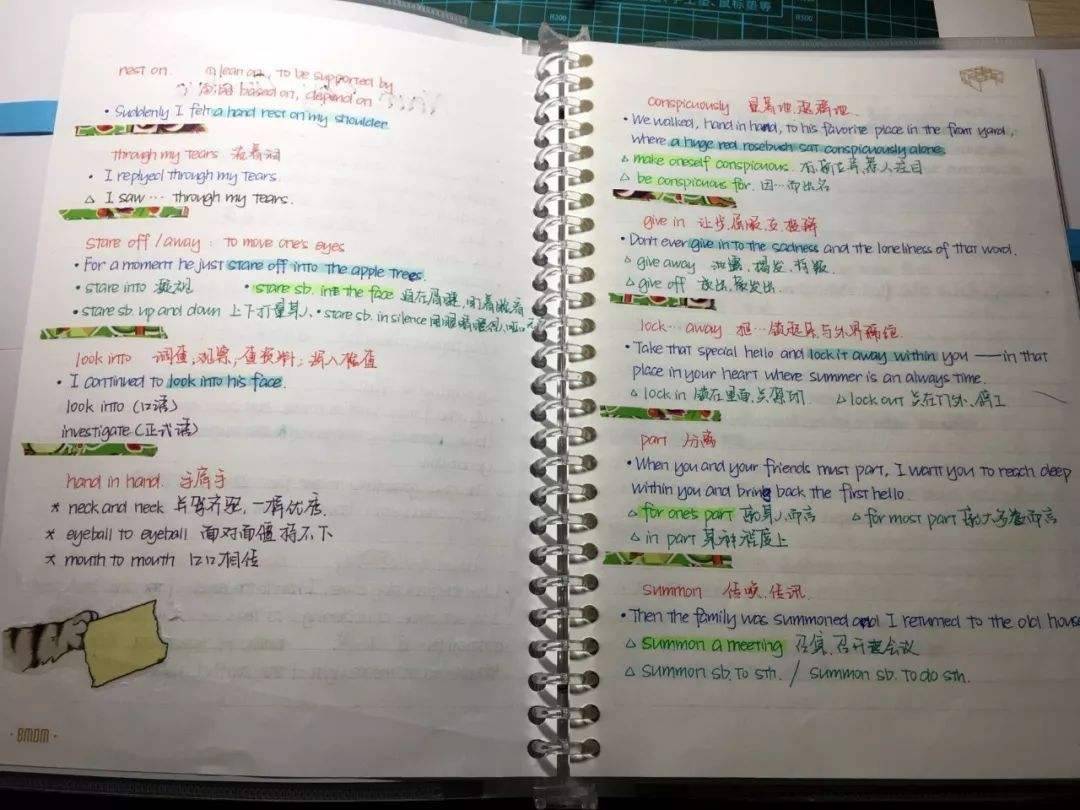 rest on. ① lean on, to be supported by
based on, depend on
• Suddenly I felt a hand rest on my shoulder.
through my tears 泪
• I replyed through my tears.
△ I saw … through my tears.
stare off / away : to move one's eyes
• For a moment he just stare off into the apple trees.
• stare into 凝视 • stare sb. in the face 迫在眉睫,盯着脸看
• stare sb. up and down 上下打量某人、• stare sb. in silence
look into 调查,观察,查资料;深入检查
• I continued to look into his face.
look into (口语)
investigate (正式语)
hand in hand. 手肩手
* neck and neck 并驾齐驱,一屑优劣.
* eyeball to eyeball 面对面僵持不下
* mouth to mouth 口口相传
• BMDM •
conspicuously 显著地,超群地
• We walked, hand in hand, to his favorite place in the front yard,
where a huge red rosebush sat conspicuously alone.
△ make oneself conspicuous. 惹人注目
△ be conspicuous for. 因…而出名
give in 让步,屈服,交,投降
• Don't ever give in to the sadness and the loneliness of that word.
△ give away 泄露,揭发,
△ give off 放出,散发出.
lock … away 把…锁起来,与外界隔绝
• Take that special hello and lock it away within you — in that
place in your heart where summer is an always time.
△ lock in 锁在里面,关 △ lock out 关在门外、停工
part 分离
• When you and your friends must part, I want you to reach deep
within you and bring back the first hello.
△ for one's part 就某人而言 △ for most part 就大多数而言
△ in part 某种程度上
summon 传唤,传讯
• Then the family was summoned and I returned to the old house
△ summon a meeting 召集,召开会议
△ summon sb. to sth. / summon sb. to do sth.